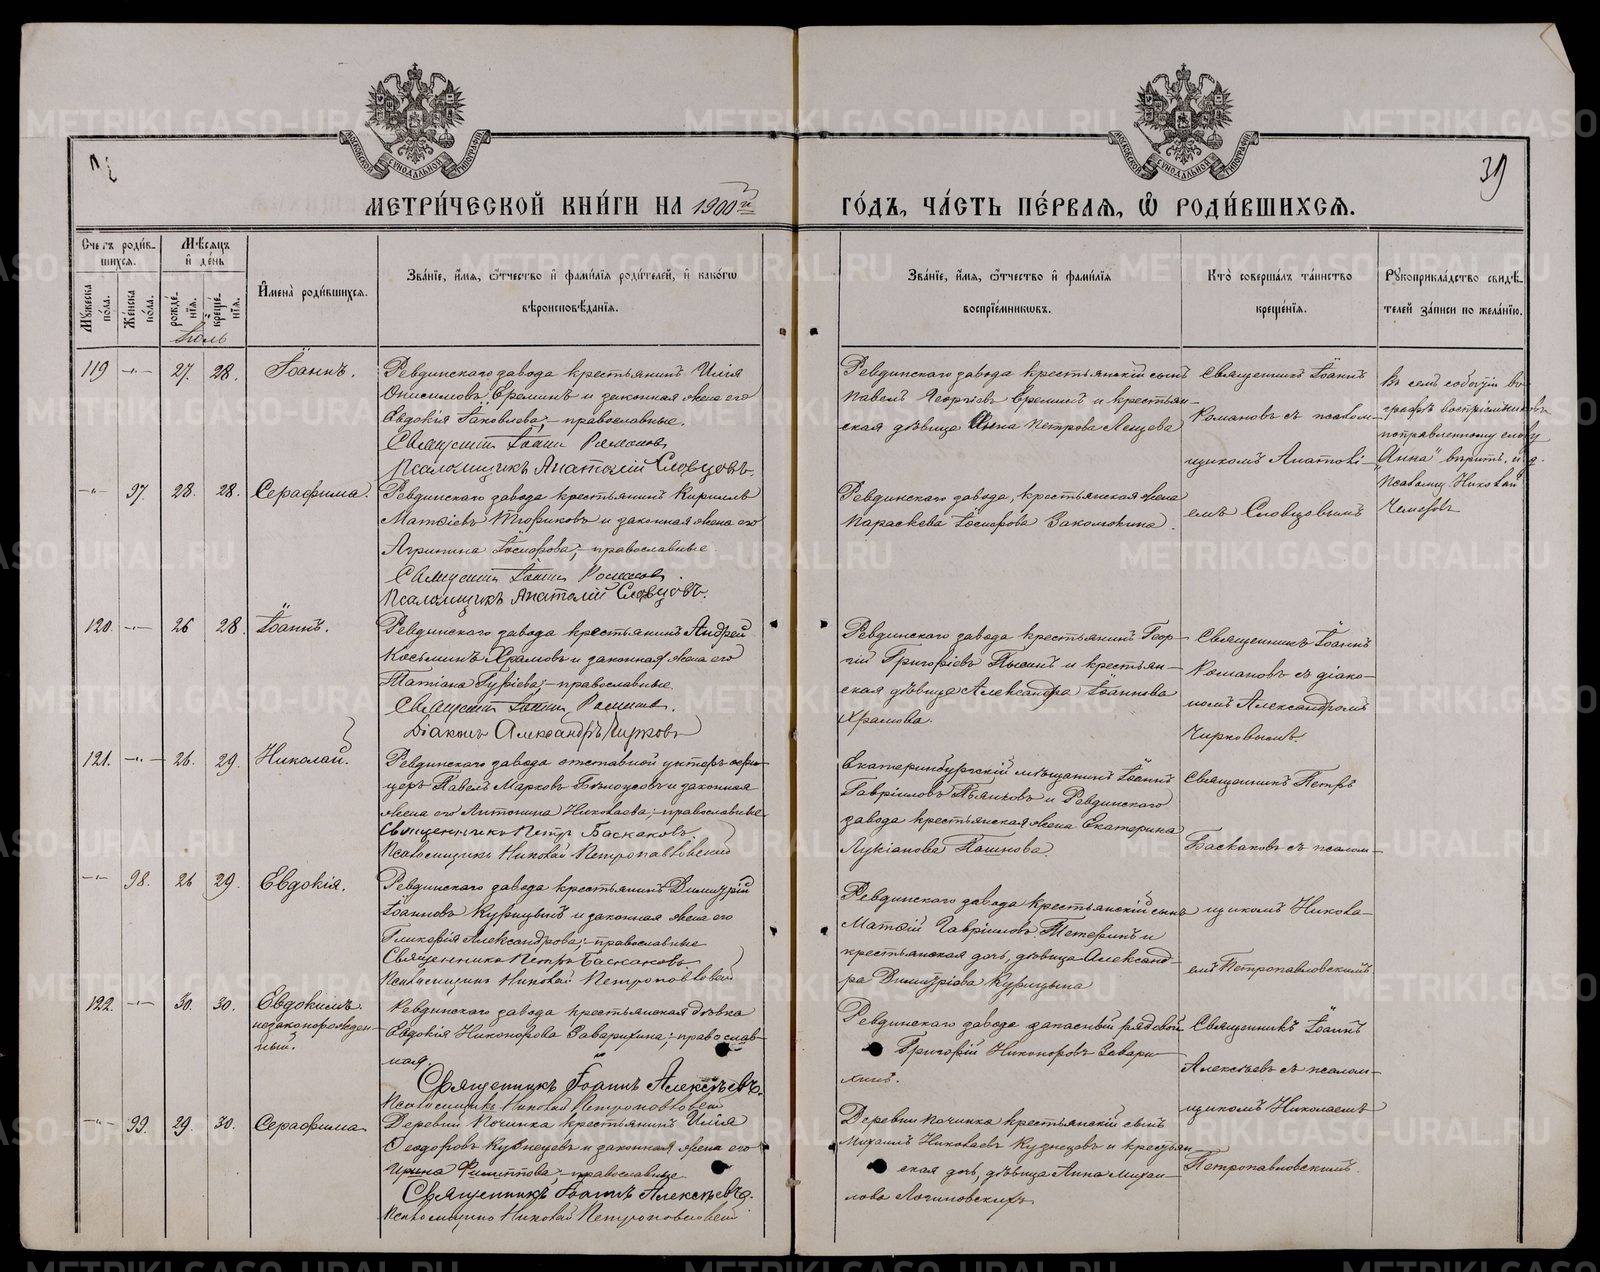 МЕТРИ́ЧЕСКОЙ КНИ́ГИ НА 1900й
ГО́ДЪ, ЧА́СТЬ ПЕ́РВАЯ, Ѽ РОДИ́ВШИХСЯ.
39
Счетъ роди́в-
шихся.
Мѣсяцъ
и҆ де́нь
Му́жеска по́ла.
Же́нска по́ла.
рожде́-
нїя.
креще́-
нїя.
И҆мена̀ роди́вшихся.
Зва́нїе, и҆́мя, ѻ҆́тчество и҆ фами́лїя роди́телей, и҆ како́гѡ
вѣроисповѣ́данїя.
Зва́нїе, и҆́мя, ѻ҆́тчество и҆ фами́лїя
воспрїе́мниковъ.
Кто̀ соверша́лъ та́инство
креще́нїя.
Рꙋкоприкла́дство свидѣ́-
телей за́писи по жела́нїю.
Іюль
119 —"— 27. 28. Іоаннъ.
Ревдинскаго завода крестьянинъ Илія
Онисимовъ Ереминъ и законная жена его
Евдокія Іаковлева; – православные.
Священникъ Іоаннъ Романовъ
Псаломщикъ Анатолій Словцовъ.
Ревдинскаго завода крестьянскій сынъ
Павелъ Георгіевъ Ереминъ и крестьян-
ская дѣвица Анна Петрова Лещева
Священникъ Іоаннъ
Романовъ съ псалом-
щикомъ Анатолі-
емъ Словцовымъ
Въ семъ событіи въ
графѣ воспріемниковъ
поправленному слову
„Анна" вѣрить. и. д.
Псаломщ. Николай
—"— 97. 28. 28. Серафима.
Ревдинскаго завода крестьянинъ Кириллъ
Матѳіевъ Тюриковъ и законная жена его
Агрипина Ѳеодорова; – православные
Священникъ Іоаннъ Романовъ.
Псаломщикъ Анатолій Словцовъ.
Ревдинскаго завода, крестьянская жена
Параскева Закомолкина.
120. —"— 26 28. Іоаннъ.
Ревдинскаго завода крестьянинъ Андрей
Косьминъ Храмовъ и законная жена его
Татіана Гуріева; – православные
Священникъ Іоаннъ Романовъ.
Діаконъ Александръ Чирковъ
Ревдинскаго завода крестьянинъ Геор-
гій Григоріевъ и крестьян-
ская дѣвица Александра Іоаннова
Храмова.
Священникъ Іоаннъ
Романовъ съ діако-
номъ Александромъ
Чирковымъ.
121. —"— 26. 29. Николай.
Ревдинскаго завода отставной унтеръ офи-
церъ Павелъ Марковъ Бѣлоусовъ и законная
жена его Антонина Николаева; – православные
Священникъ Петръ Баскаковъ
Псаломщикъ Николай Петропавловскій
Екатеринбургскій мѣщанинъ Іоаннъ
Гавріиловъ Пьянковъ и Ревдинскаго
завода крестьянская жена Екатерина
Лукіанова Пашкова.
Священникъ Петръ
Баскаковъ съ псалом-
щикомъ Никола-
емъ Петропавловскимъ
—"— 98. 26 29. Евдокія.
Ревдинскаго завода крестьянинъ Димитрій
Іоанновъ Курицынъ и законная жена его
Гликерія Александрова; – православные
Священникъ Петръ Баскаковъ
Псаломщикъ Николай Петропавловскій
Ревдинскаго завода крестьянскій сынъ
Матѳій Гавріиловъ Тетеринъ и
крестьянская дочь, дѣвица Александ-
ра Димитріева Курицына
122. —"— 30. 30. Евдокимъ.
незаконорожден-
ный.
Ревдинскаго завода крестьянская дѣвка
Евдокія Никонорова Заварихина; – православ-
ная,
Священникъ Іоаннъ Алексѣевъ.
Псаломщикъ Николай Петропавловскій
Ревдинскаго завода запасный рядовой
Григорій Никоноровъ Завари-
хинъ.
Священникъ Іоаннъ
Алексѣевъ съ псалом-
щикомъ Николаемъ
Петропавловскимъ.
—"— 99. 29. 30. Серафима
Деревни Починка крестьянинъ Илія
Ѳеодоровъ Кузнецовъ и законная жена его
Ирина Филиппова; – православные
Священникъ Іоаннъ Алексѣевъ.
Псаломщикъ Николай Петропавловскій
Деревни Починка крестьянскій сынъ
Михаилъ Николаевъ Кузнецовъ и крестьян-
ская дочь, дѣвица Анна Михаи-
лова Логиновскихъ
METRIKI.GASO-URAL.RU